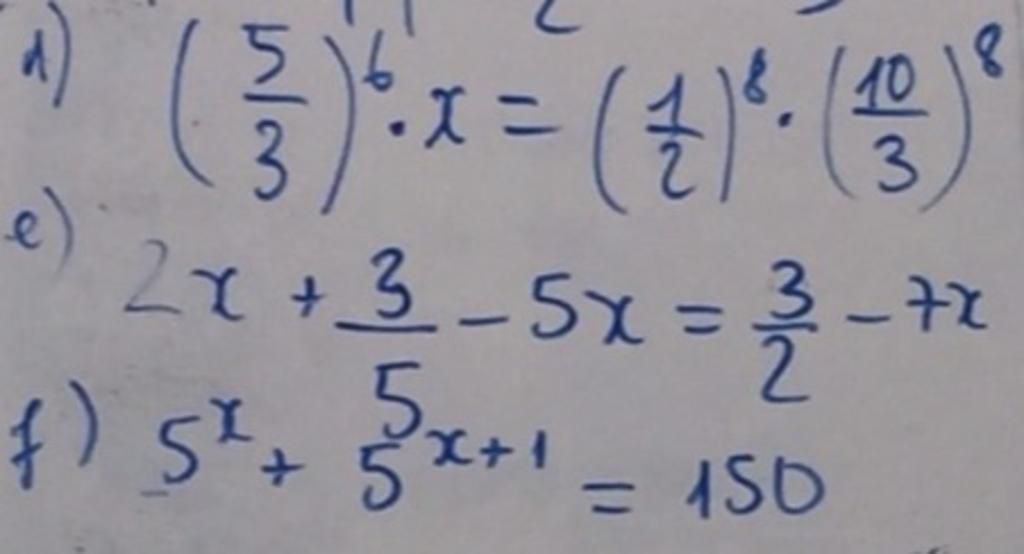 d) (5/3)^6 . x = (1/2)^8 . (10/3)^8
e) 2x + 3/5 - 5x = 3/2 - 7x
f) 5^x + 5^(x+1) = 150